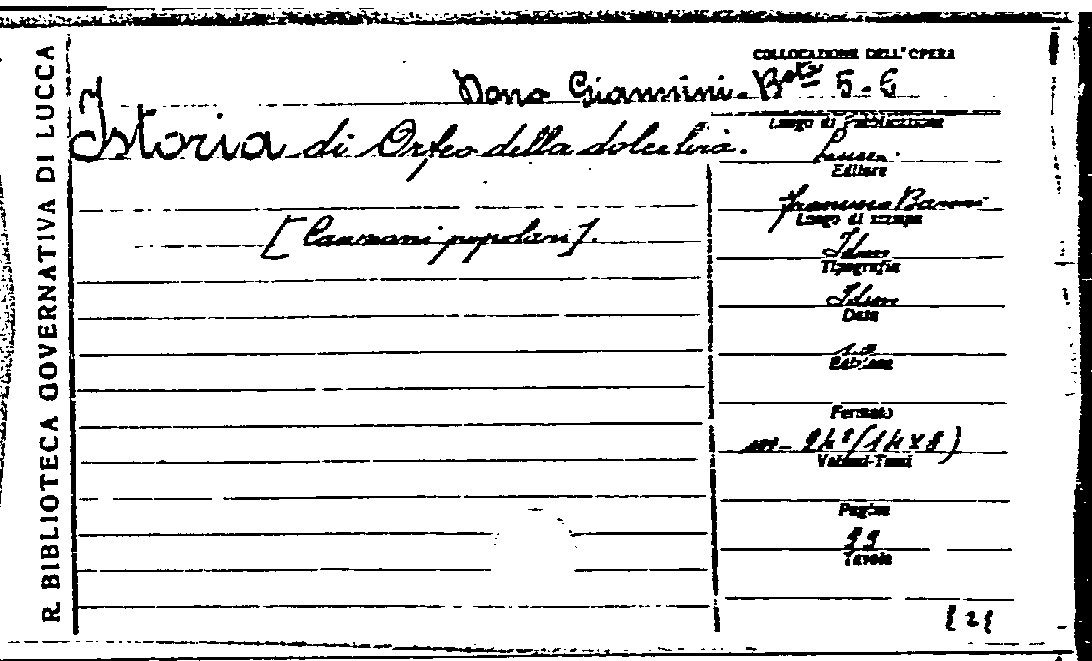 R. BIBLIOTECA GOVERNATIVA DI LUCCA
COLLOCAZIONE DELL'OPERA
Dono Giannini. Bsta 5-6
Istoria di Orfeo della dolce lira.
[Canzoni popolari].
Luogo di Pubblicazione
Lucca.
Editore
Francesco Baroni
Luogo di stampa
Idem
Tipografia
Idem
Data
s.a.
Edizione
Formato
in-24º (14x8)
Volumi-Tomi
Pagine
Tavole
[2]